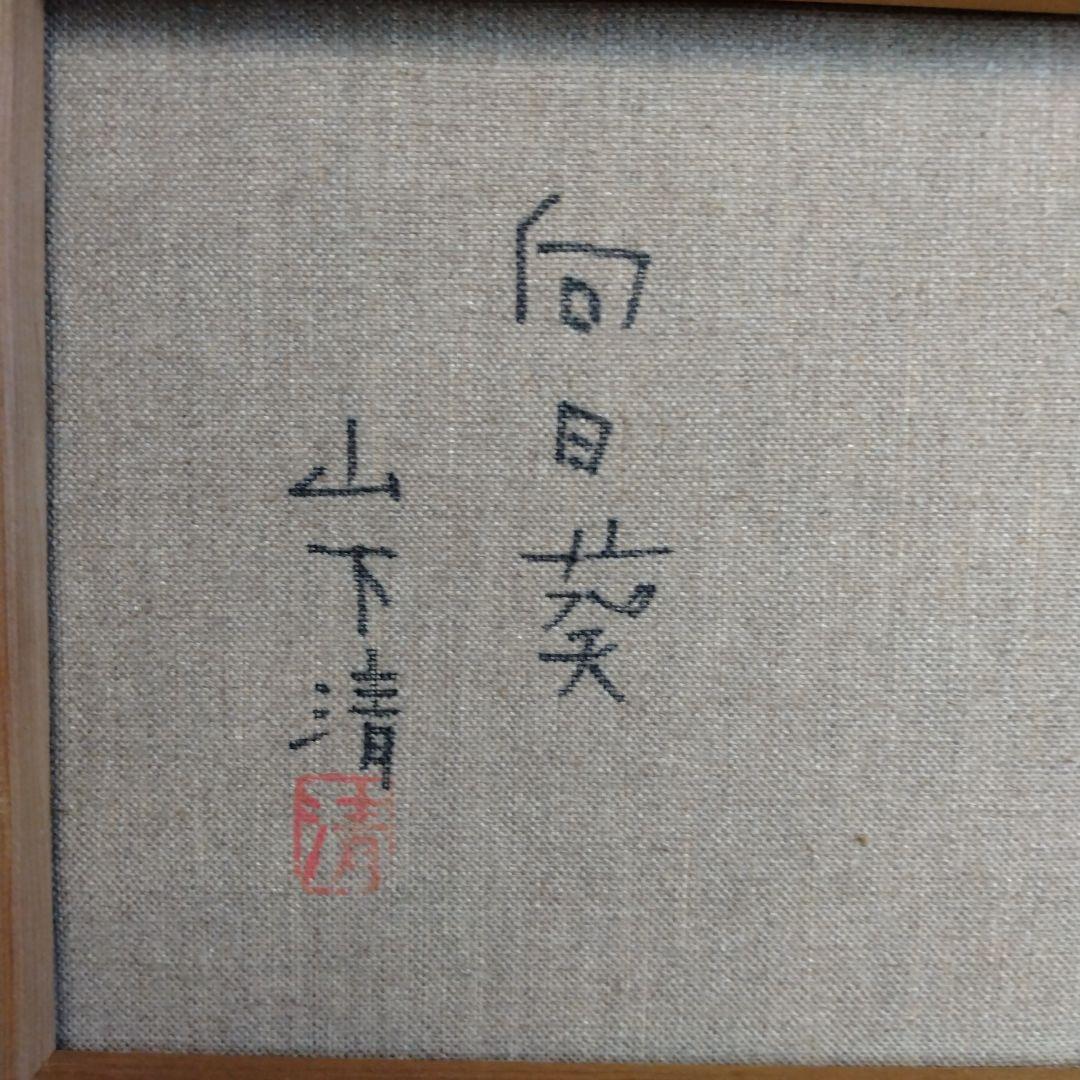 向日葵
山下清
清